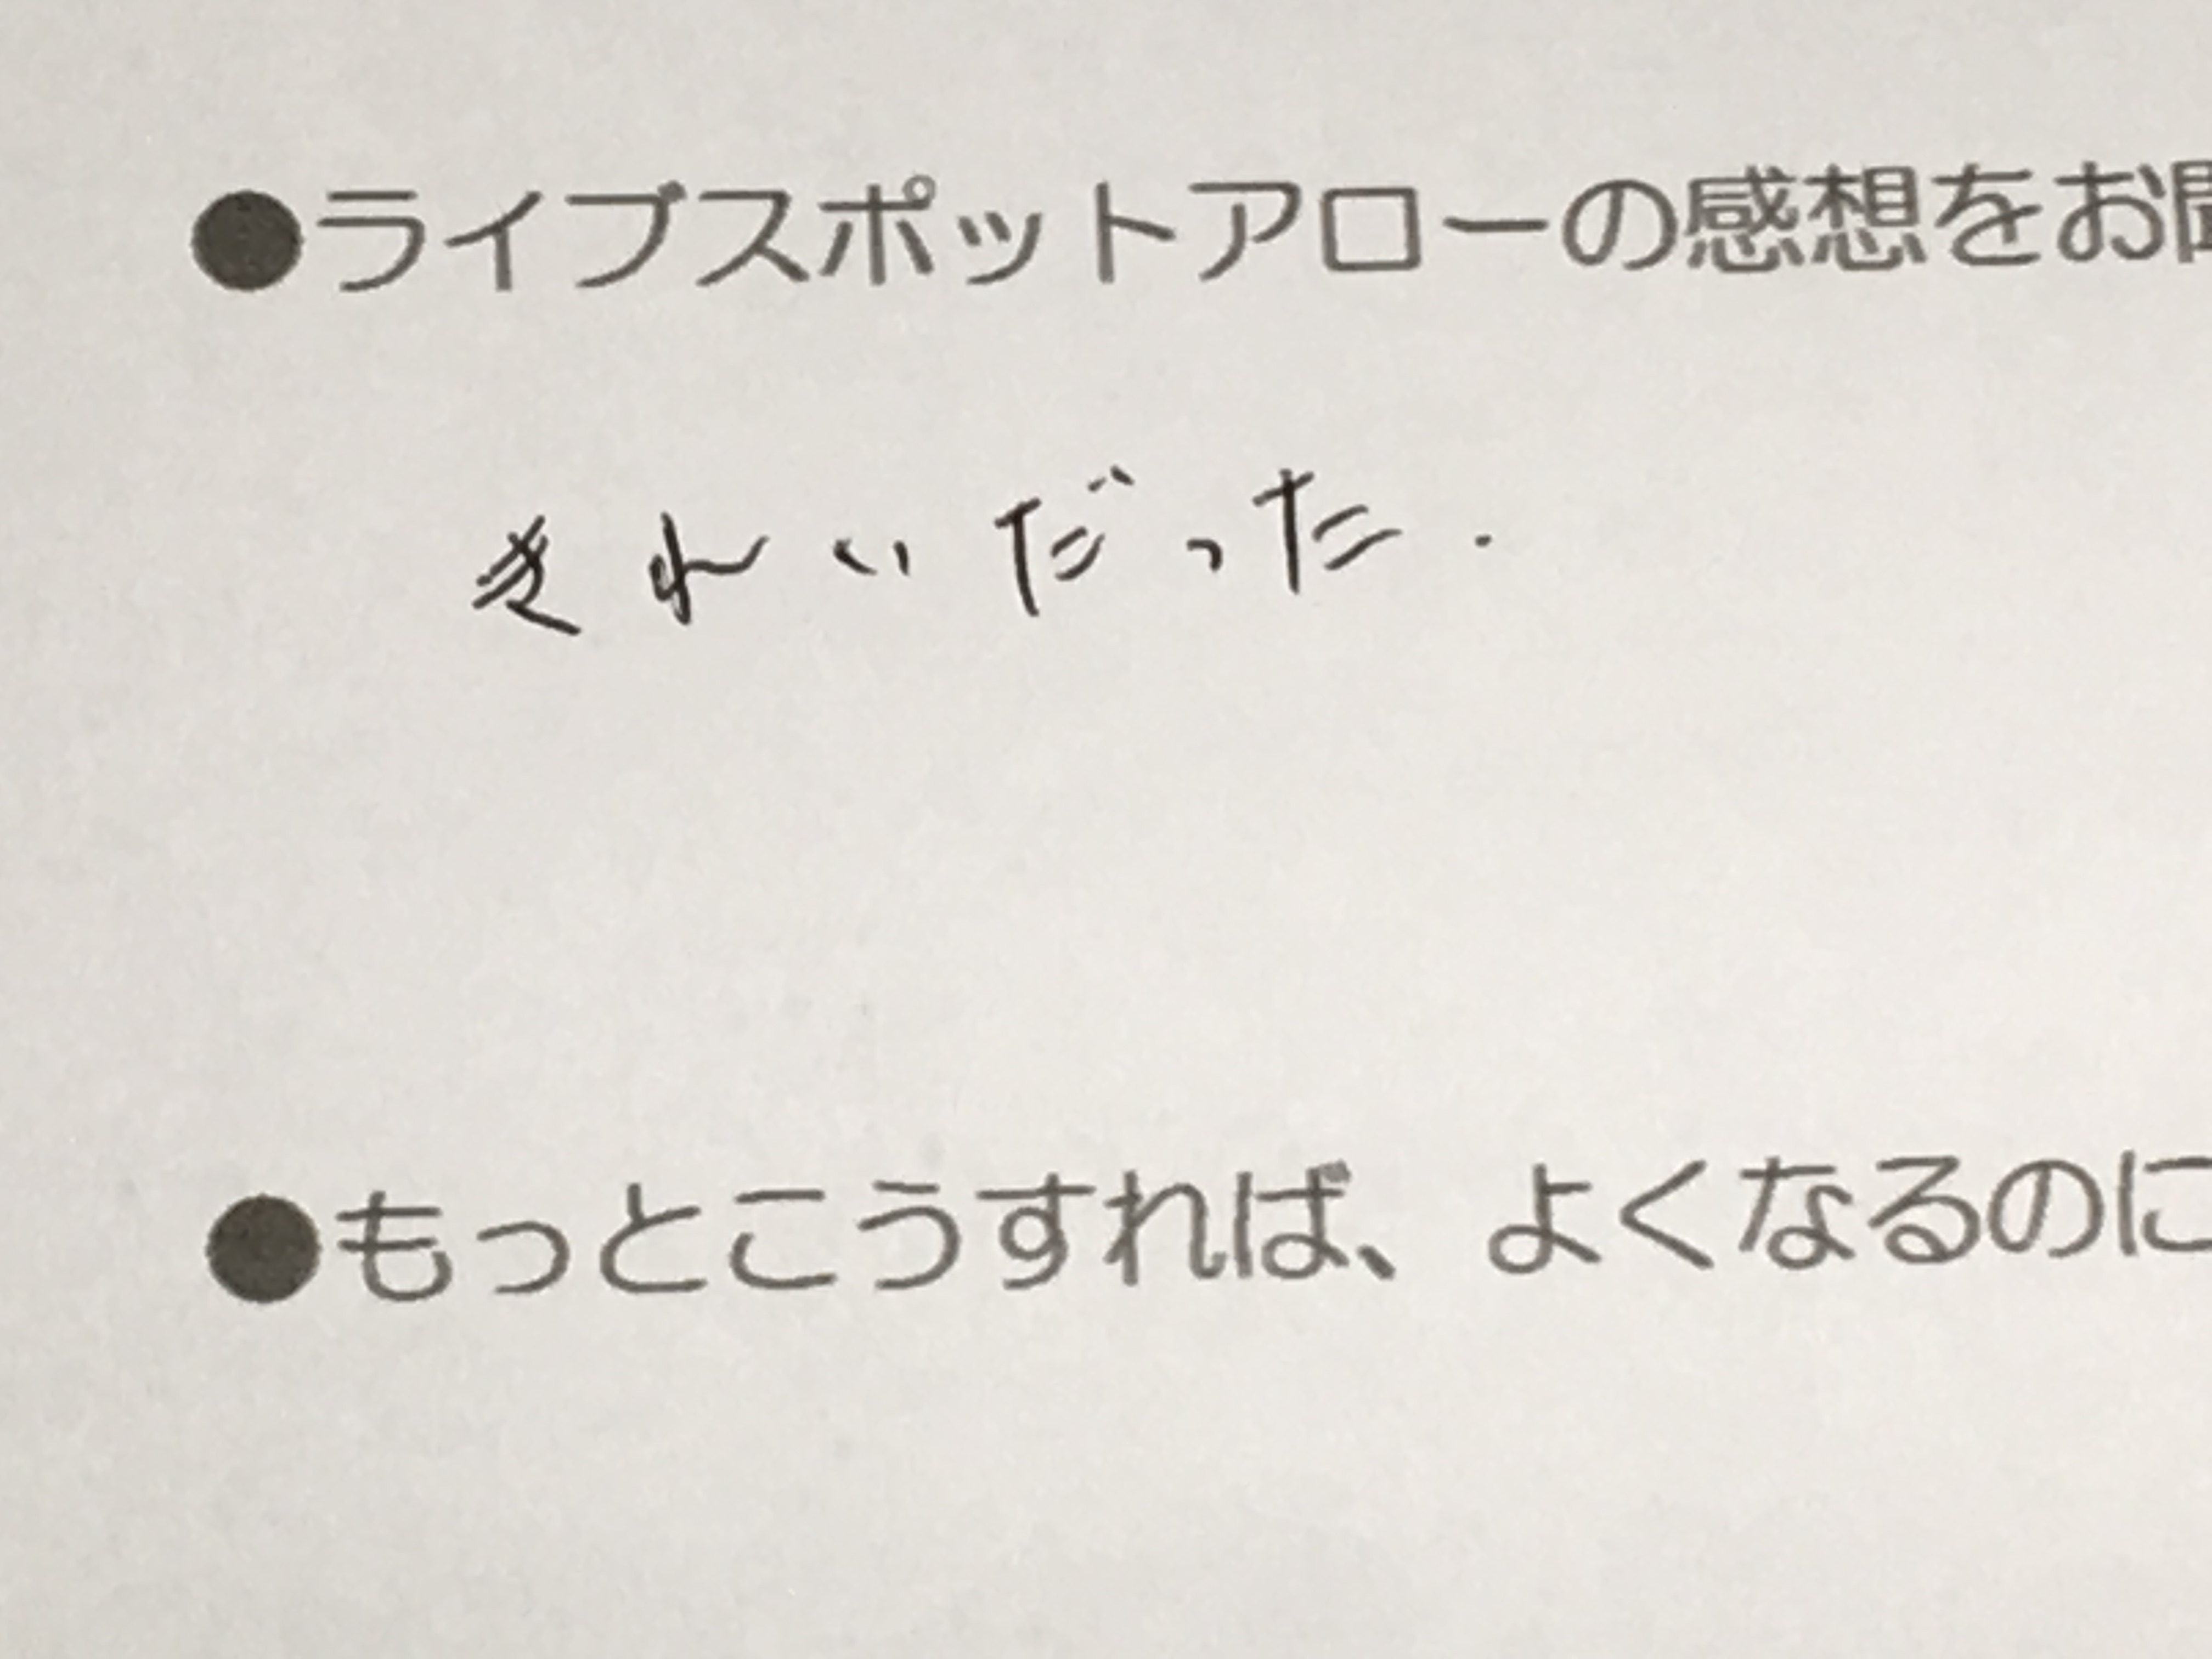 ●ライブスポットアローの感想をお聞
きれいだった.
●もっとこうすれば、よくなるのに